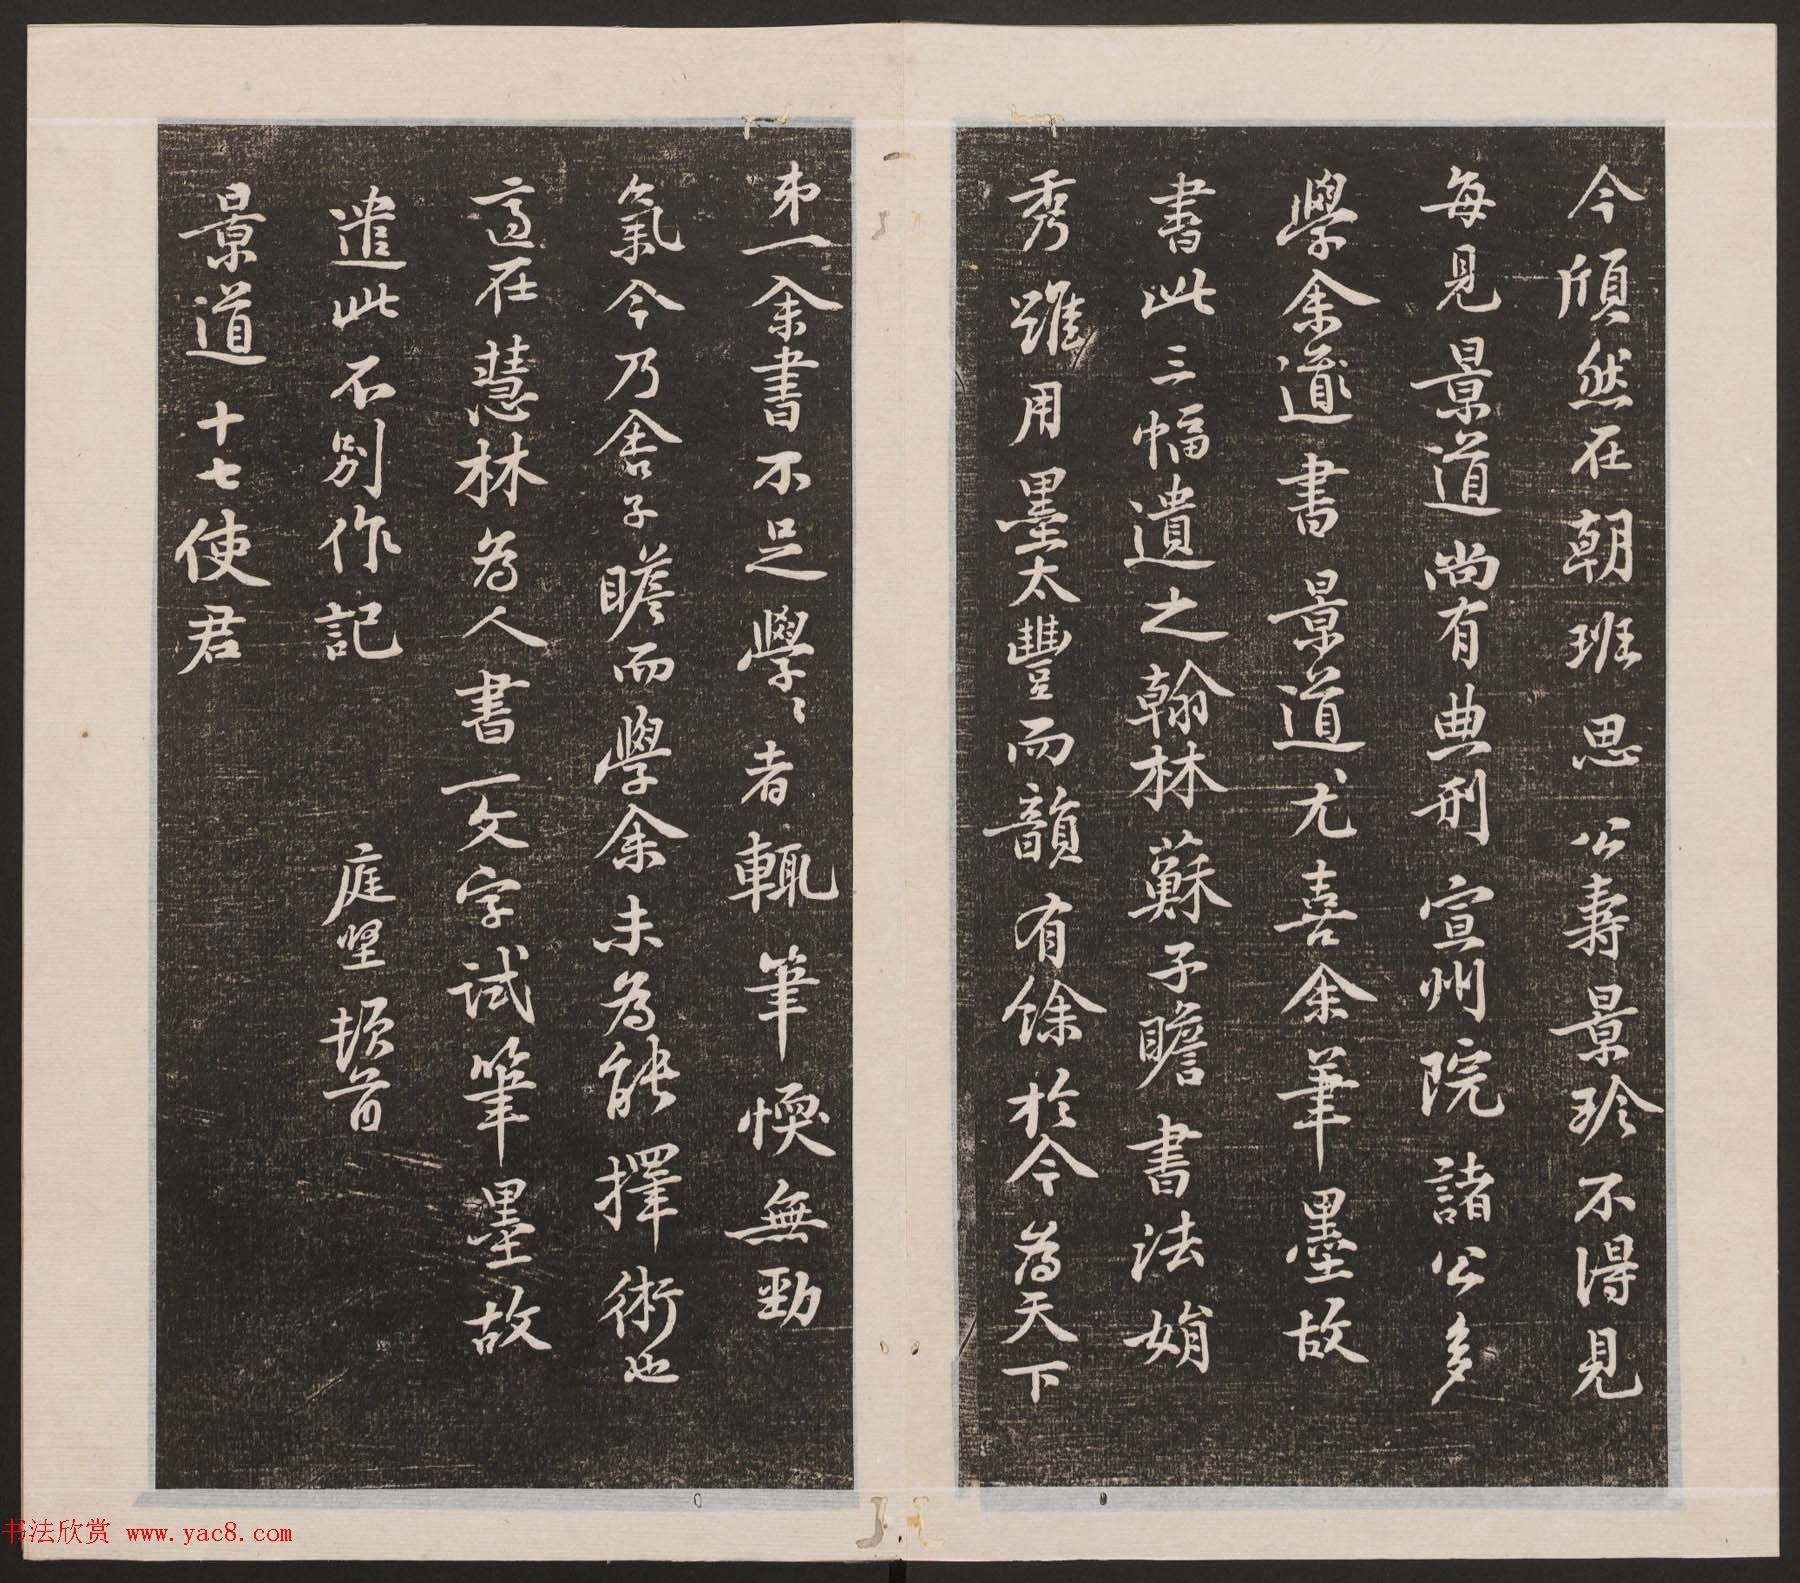 今頎然在朝班思公壽景珍不得見
每見景道尚有典刑宣州院諸公多
學余道書景道尤喜余筆墨故
書此三幅遺之翰林蘇子瞻書法娟
秀雖用墨太豐而韻有餘於今為天下
弟一余書不足學〻者輒筆愞無勁
氣今乃舍子瞻而學余未為能擇術也
適在慧林為人書一文字試筆墨故
遣此不別作記
庭堅頓首
景道十七使君
书法欣赏 www.yac8.com